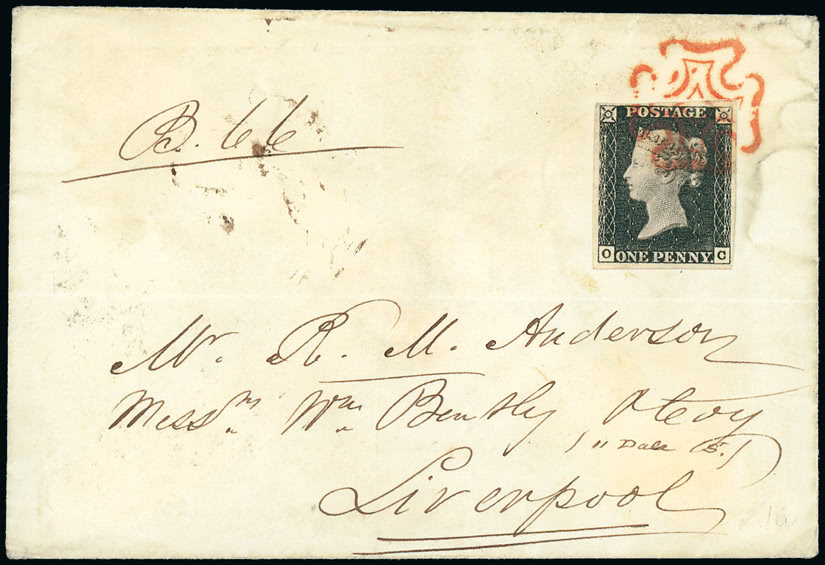 B. 66
POSTAGE
O ONE PENNY C
Mr. R. M. Anderson
Messrs. Wm. Bently
Dale St.
Liverpool